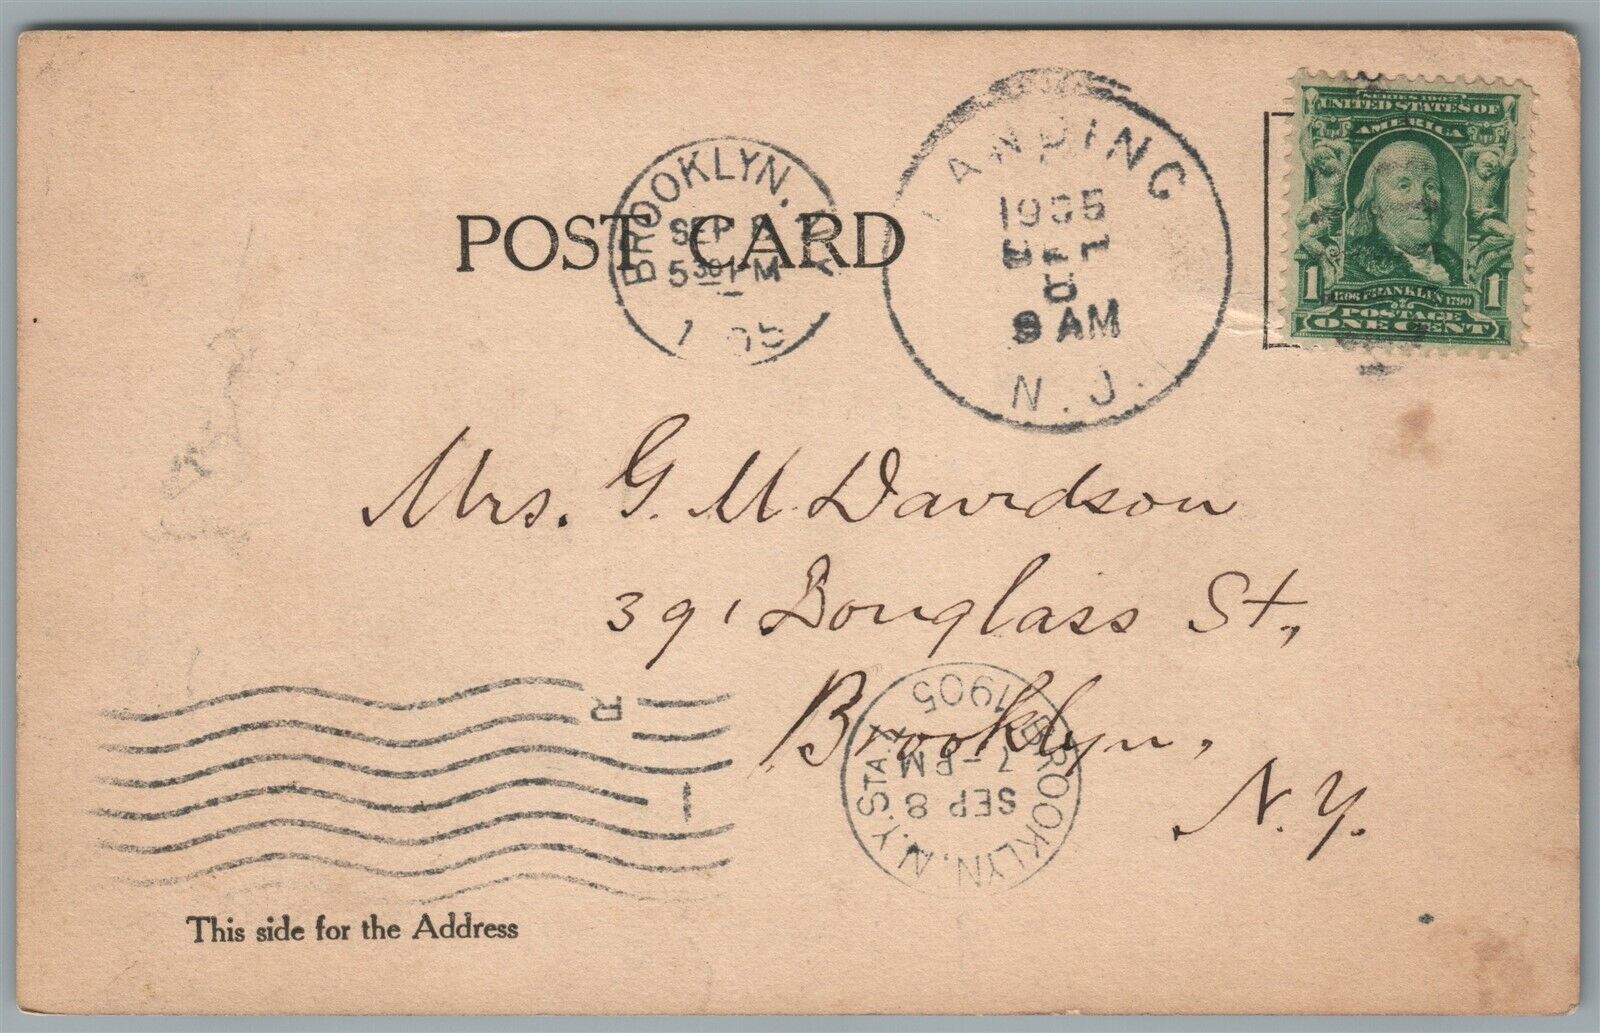 POST CARD
BROOKLYN, N.Y.
SEP 8
5 30 PM
1905
LANDING
1905
SEP
8
9 AM
N.J.
SERIES 1902
UNITED STATES OF
AMERICA
1 1706 FRANKLIN 1790 1
POSTAGE
ONE CENT
Mrs. G. M. Davidson
391 Douglass St,
Brooklyn,
N.Y.
R
BROOKLYN, N.Y. STA. A
SEP 8
7 - PM
1905
This side for the Address